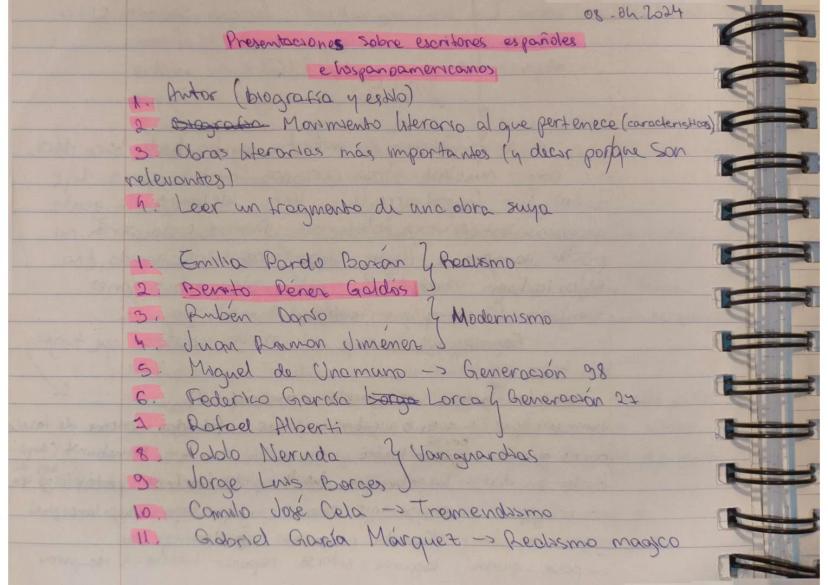 08.04.2024
Presentaciones sobre escritores españoles
e hispanoamericanos
1. Autor (biografía y estilo)
2. Biografía Movimiento literario al que pertenece (características)
3. Obras literarias más importantes (y decir porque son
relevantes)
4. Leer un fragmento de una obra suya
1. Emilia Pardo Bazán } Realismo
2. Benito Pérez Galdós
3. Rubén Darío } Modernismo
4. Juan Ramon Jiménez
5. Miguel de Unamuno -> Generación 98
6. Federico García Lorca } Generación 27
7. Rafael Alberti
8. Pablo Neruda } Vanguardias
9. Jorge Luis Borges
10. Camilo José Cela -> Tremendismo
11. Gabriel García Márquez -> Realismo magico